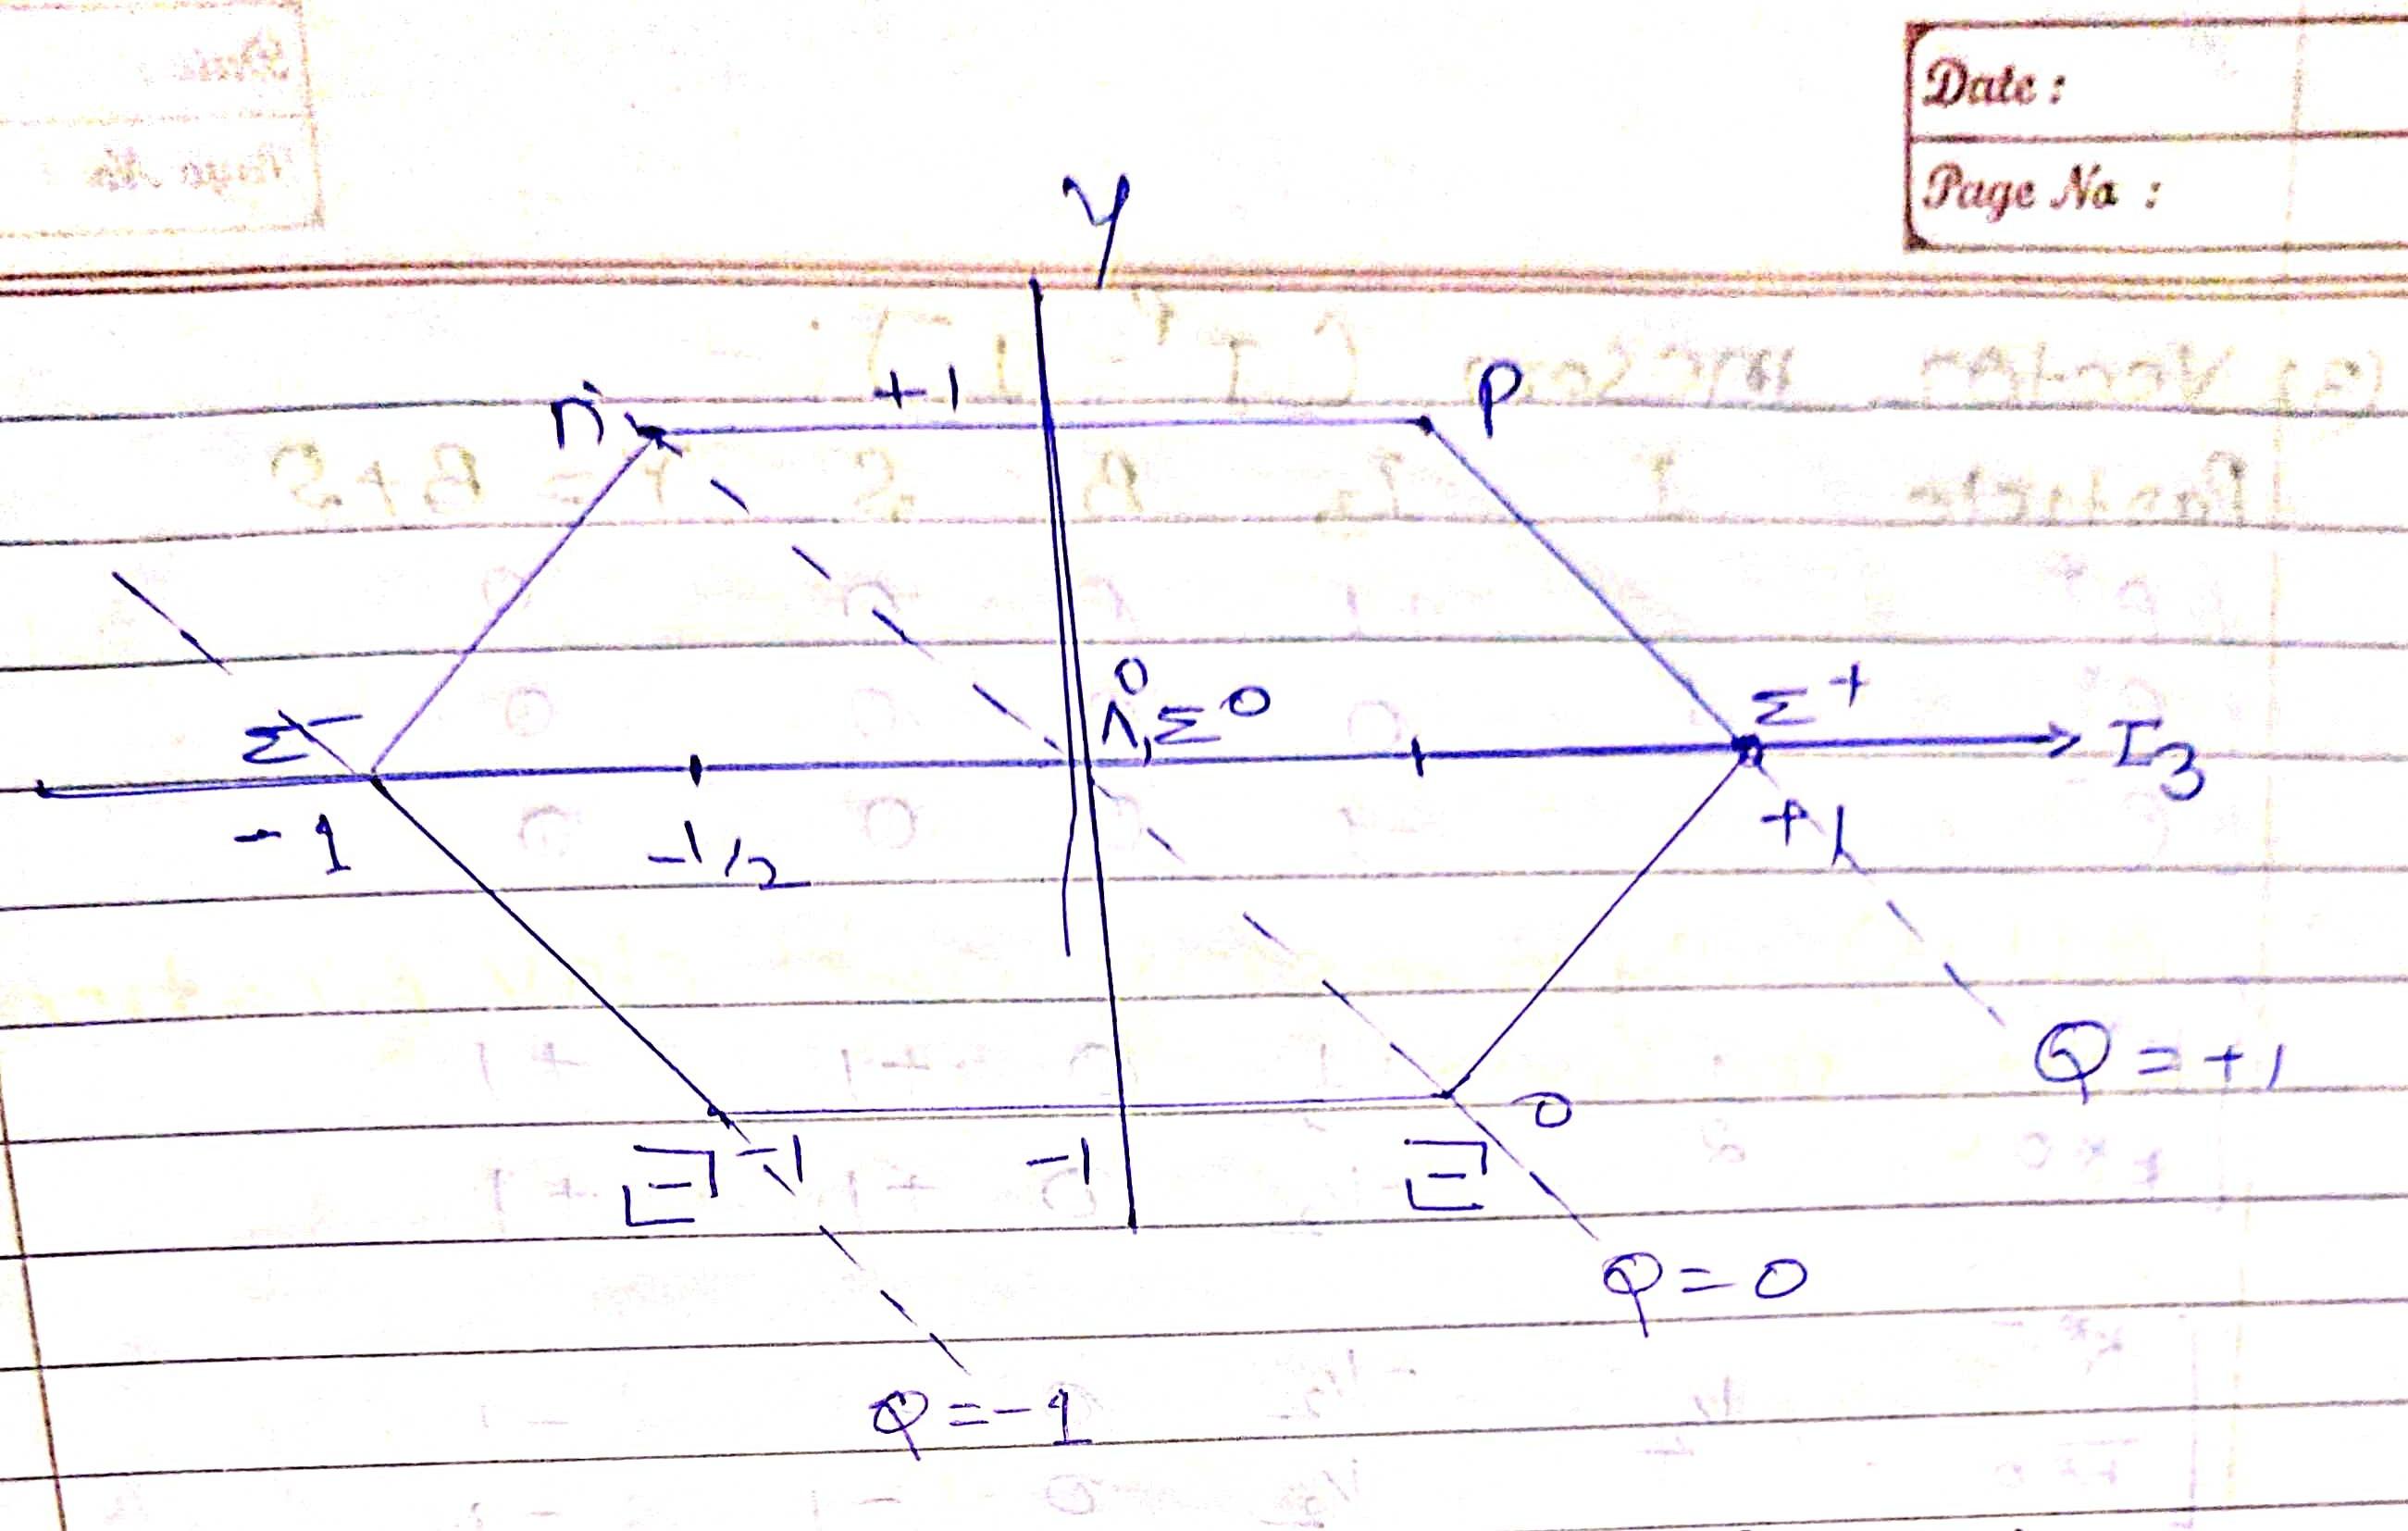 Date :
Page No :
Y
n +1 P
Λ⁰, Σ⁰
Σ⁻ Σ⁺ I₃
-1 -1/2 +1
Q = +1
Ξ⁻¹ -1 Ξ⁰
Q = 0
Q = -1